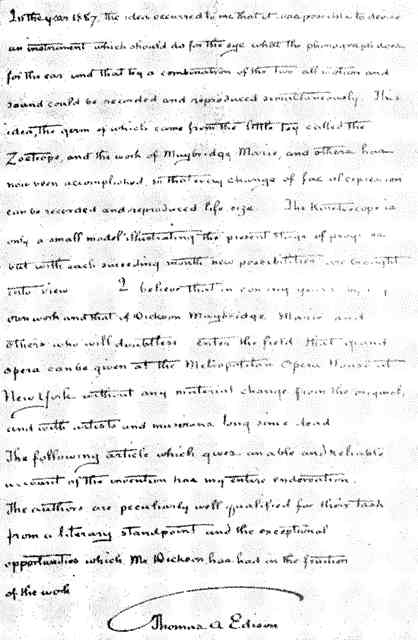 In the year 1887, the idea occurred to me that it was possible to devise
an instrument which should do for the eye what the phonograph does
for the ear and that by a combination of the two all motion and
sound could be recorded and reproduced simultaneously. This
idea, the germ of which came from the little toy called the
Zoetrope, and the work of Muybridge, Marié, and others has
now been accomplished, so that every change of facial expression
can be recorded and reproduced life size. The Kinetoscope is
only a small model illustrating the present stage of progress
but with each succeeding month new possibilities are brought
into view I believe that in coming years by my
own work and that of Dickson Muybridge Marié and
others who will doubtless enter the field that grand
opera can be given at the Metropolitan Opera House at
New York without any material change from the original,
and with artists and musicians long since dead
The following article which gives an able and reliable
account of the invention has my entire endorsation.
The authors are peculiarly well qualified for their task
from a literary standpoint and the exceptional
opportunities which Mr Dickson has had in the fruition
of the work
Thomas A Edison